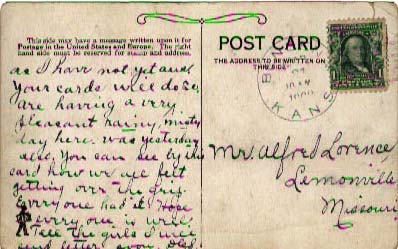 This side may have a message written upon it for
Postage in the United States and Europe. The right
hand side must be reserved for stamp and address.
POST CARD
THE ADDRESS TO BE WRITTEN ON
THIS SIDE
KANS
as I have not yet and
your cards will do so,
are having a very
pleasant rainy, misty
day here. was yesterday
also. You can see by this
card how we all feel
getting over the grip
every one had it Hope
every one is well
Tell the girls I will
send letter soon.
Mr. Alfred Lorence,
Lemonville
Missouri